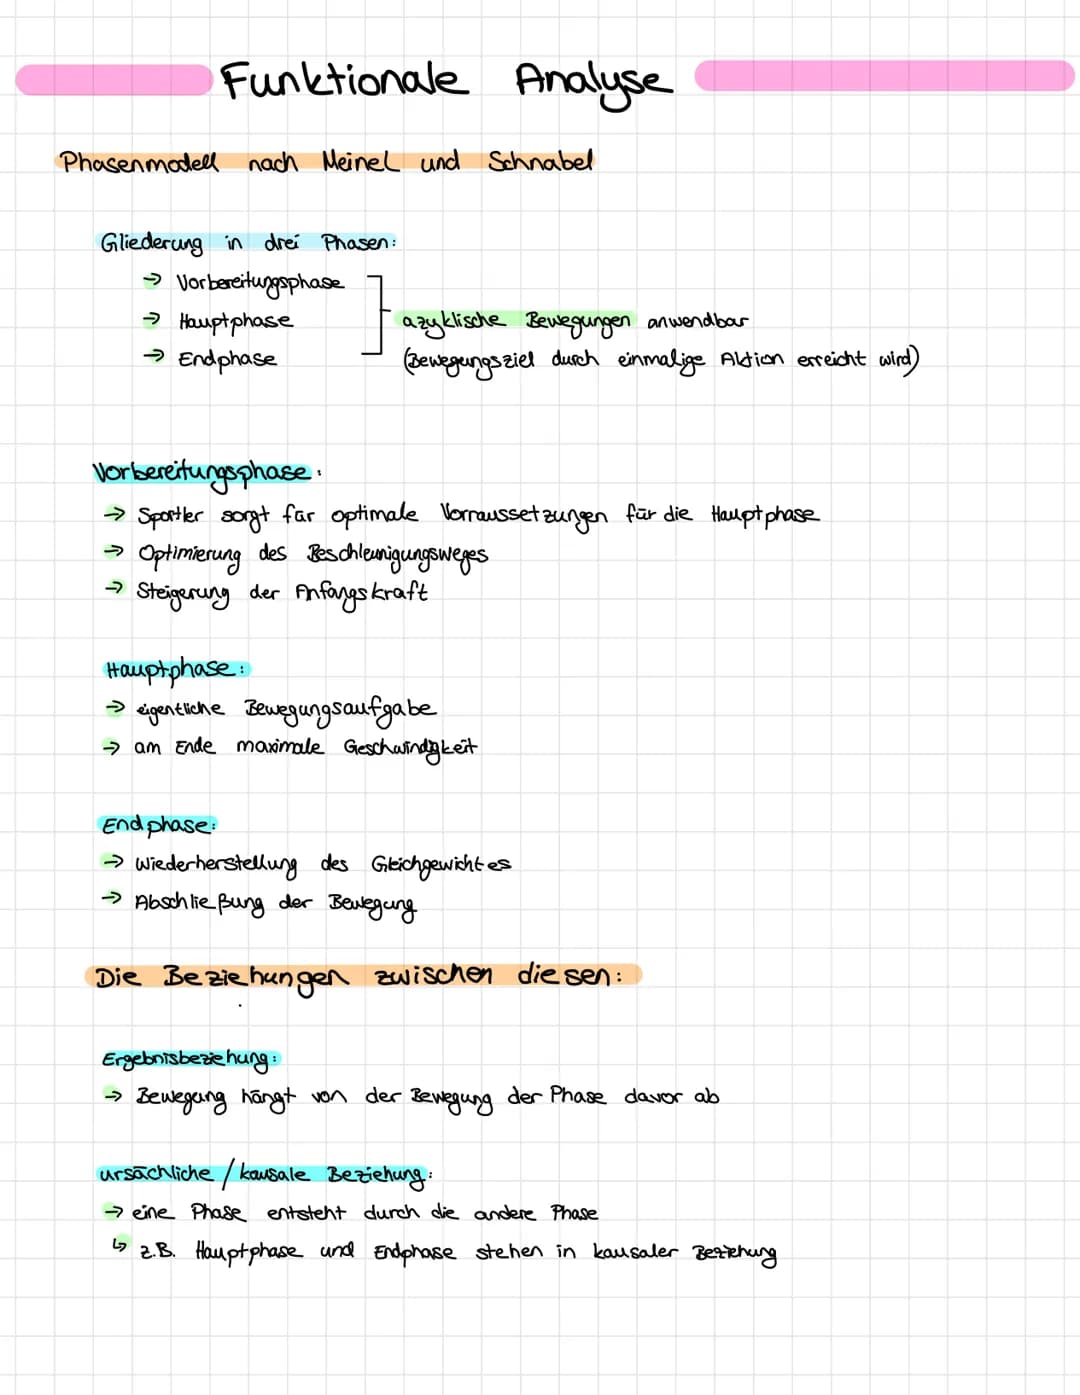 Funktionale Analyse
Phasenmodell nach Meinel und Schnabel
Gliederung in drei Phasen:
→ Vorbereitungsphase
→ Hauptphase
azyklische Bewegungen anwendbar
→ Endphase
(Bewegungsziel durch einmalige Aktion erreicht wird)
Vorbereitungsphase:
→ Sportler sorgt für optimale Vorraussetzungen für die Hauptphase
→ Optimierung des Beschleunigungsweges
→ Steigerung der Anfangskraft
Hauptphase:
→ eigentliche Bewegungsaufgabe
→ am Ende maximale Geschwindigkeit
Endphase:
→ Wiederherstellung des Gleichgewichtes
→ Abschließung der Bewegung
Die Beziehungen zwischen diesen:
Ergebnisbeziehung:
→ Bewegung hängt von der Bewegung der Phase davor ab
ursächliche / kausale Beziehung:
→ eine Phase entsteht durch die andere Phase
↳ z.B. Hauptphase und Endphase stehen in kausaler Beziehung